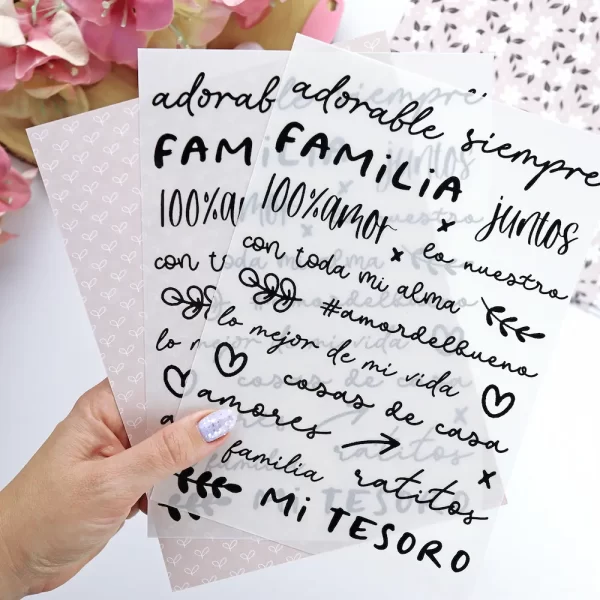 adorable siempre
FAMILIA
100% amor juntos
con toda mi alma lo nuestro
#amordelbueno
lo mejor de mi vida
cosas de casa
amores
familia ratitos
Mi TESORO
adorab
FAM
100%a
con t
lo m